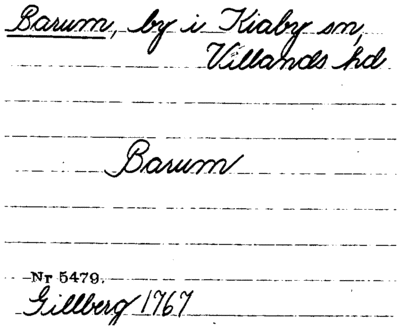 Barum, by i Kiaby sn,
Villands hd
Barum
Nr 5479.
Gillberg 1767